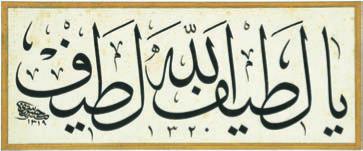 يا لطيف الله لطيف
١٣٢٠
١٣١٩